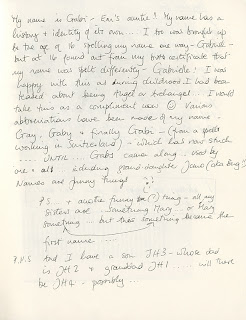 My name is Gabi - Em's auntie! My name has a
history + identity of its own.... I was brought up
to the age of 16 spelling my name one way - Gabriele -
but at 16 found out from my birth certificate that
my name was spelt differently - Gabrielle! I was
happy with this as during childhood I had been
teased about being Angel or Archangel... I would
take this as a compliment now ☺ Various
abbreviations have been made of my name -
Gray, Gaby + finally Gabi - (from a spell
working in Switzerland) - which has now stuck
.... UNTIL ... Grabs came along. Used by
one + all including grand-daughter
Names are funny things
PS... + another funny (?) thing - all my
sisters are Something Mary or Mary
something... but then something became the
first name........
P.P.S And I have a son JH3 - whose dad
is JH2 + grandad JH1 .... will there
be JH4 - possibly...